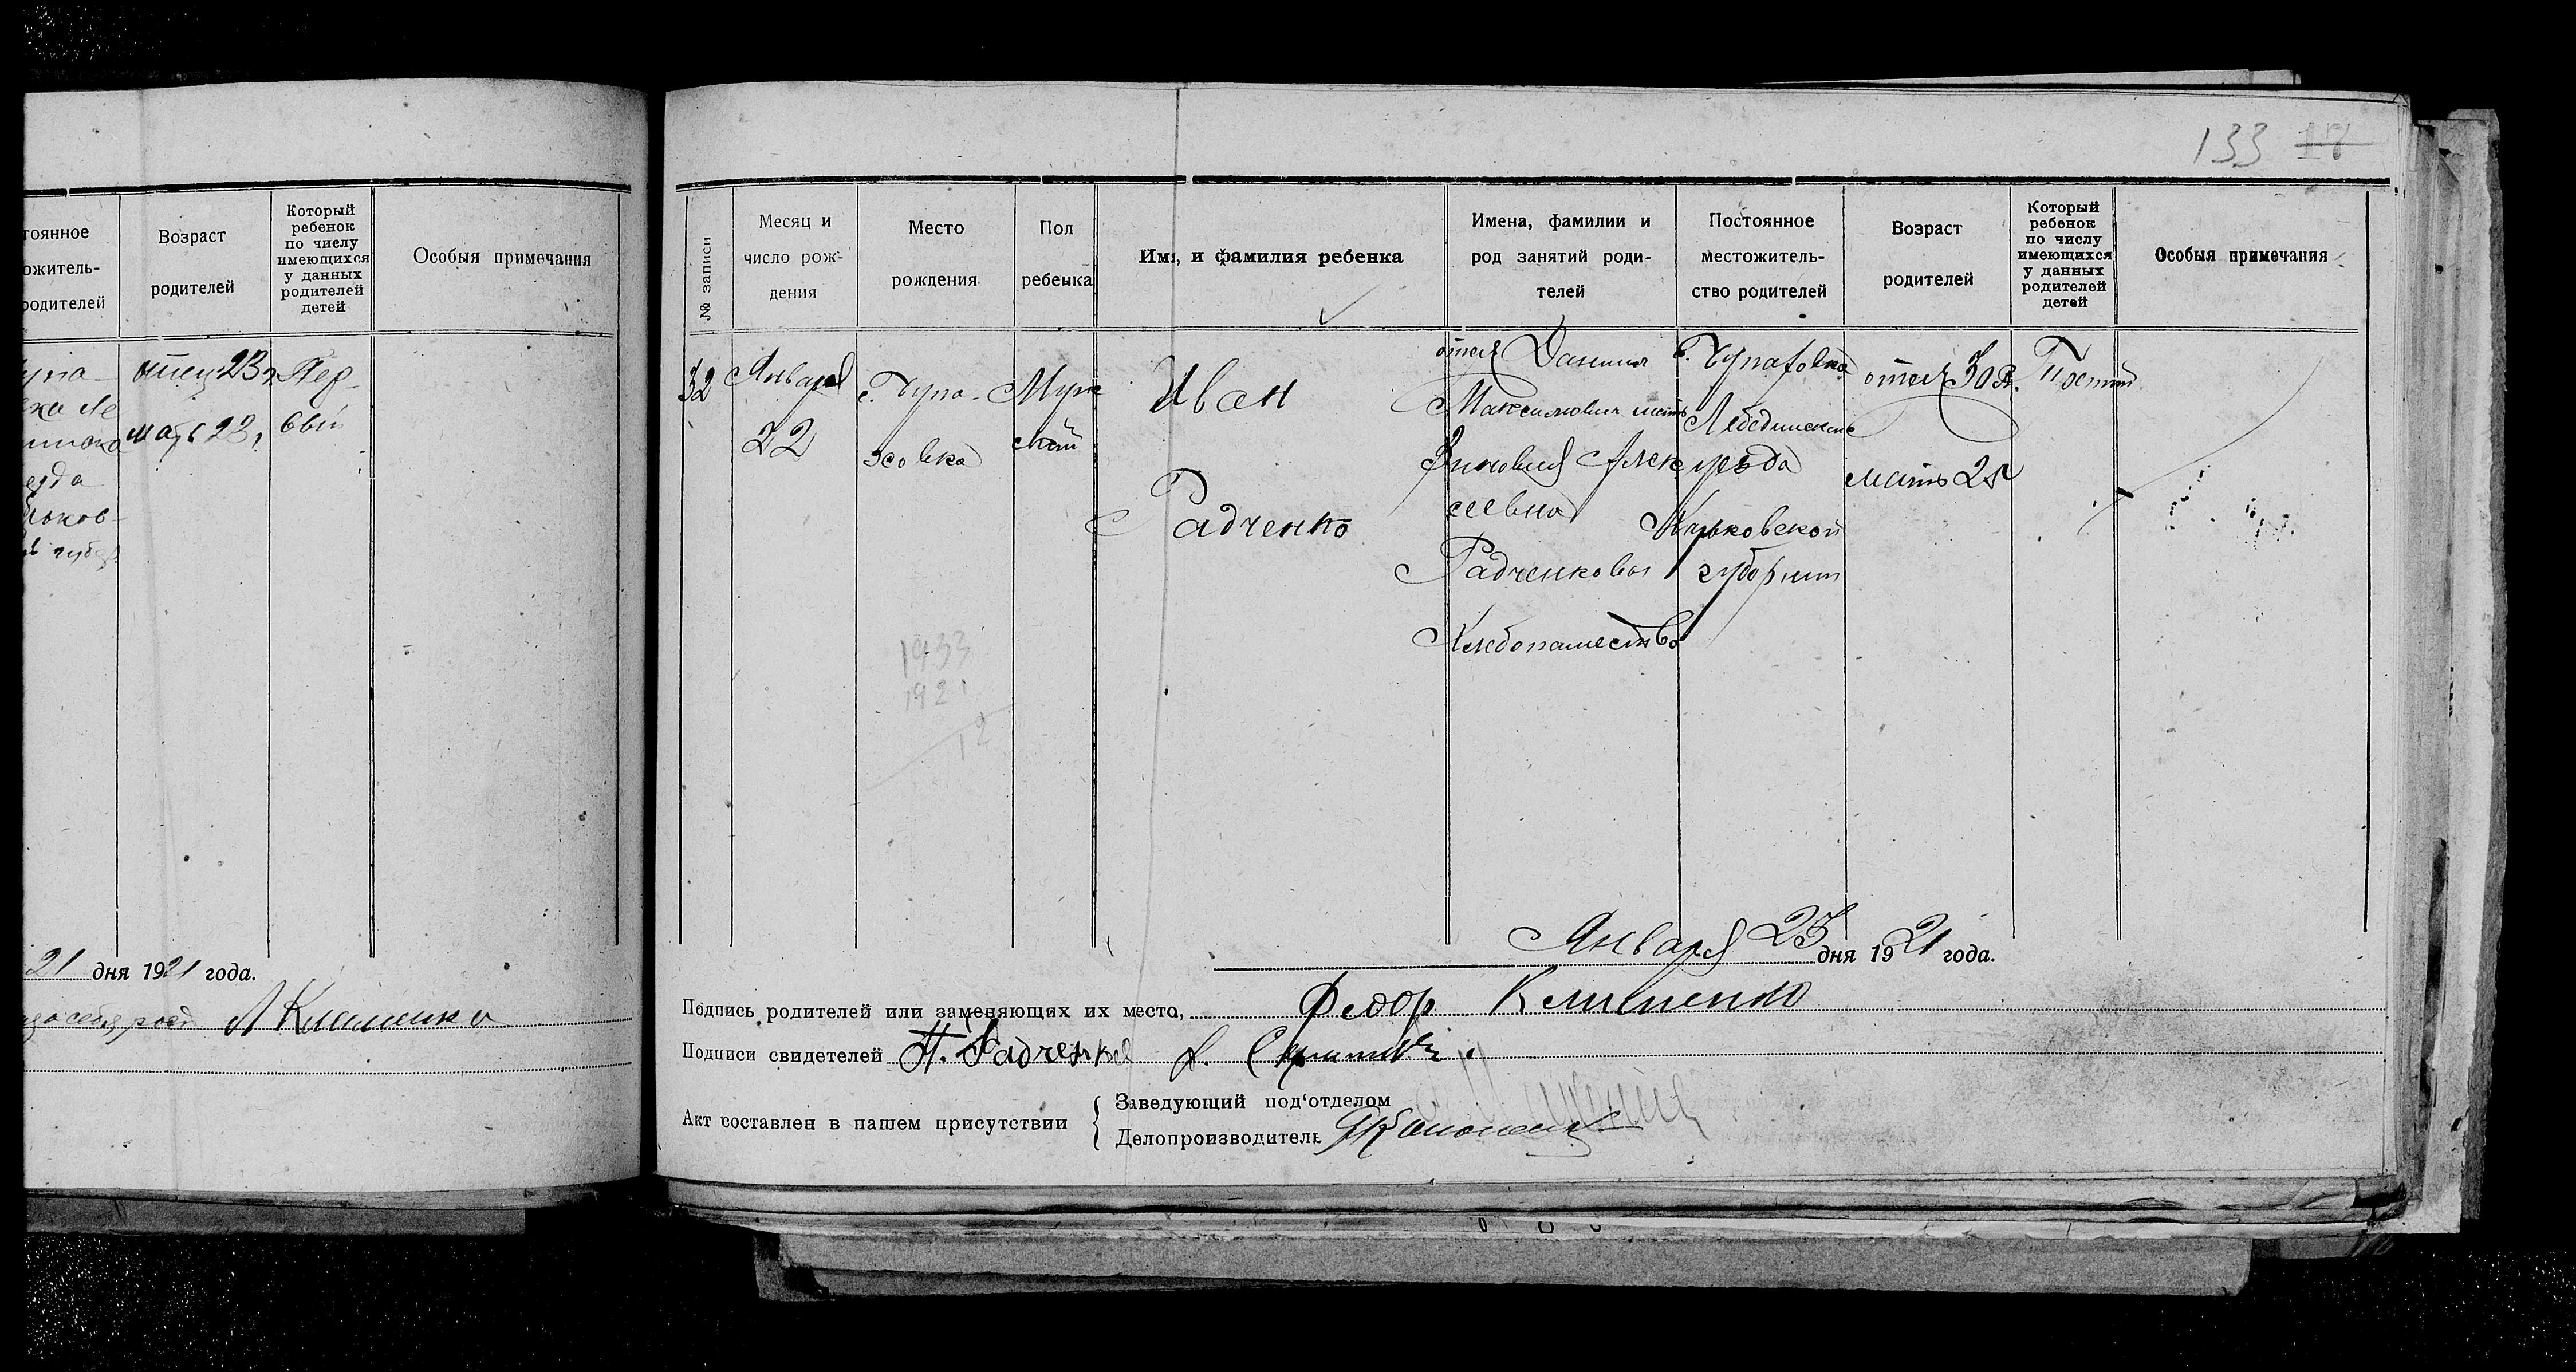 133 17
тоянное
ожитель-
родителей
Возраст
родителей
Который
ребенок
по числу
имеющихся
у данных
родителей
детей
Особыя примечания
отец 23
мать 23
Пер-
вый
21 дня 1921 года.
Клименко
№ записи
Месяц и
число рож-
дения
Место
рождения
Пол
ребенка
Имя, и фамилия ребенка
Имена, фамилии и
род занятий роди-
телей
Постоянное
местожитель-
ство родителей
Возраст
родителей
Который
ребенок
по числу
имеющихся
у данных
родителей
детей
Особыя примечания
32
Января
22
с. Чупа-
ховка
Муж
ской
Иван
Радченко
отец Даниил
Максимович мать
Зиновия Алек
сеевна
Радченковы
Хлебопашество
с. Чупаховка
Лебединского
уезда
Харьковской
губернии
отец 30 л.
мать 25
Пятый
1933
1921
12
Января 25 дня 1921 года.
Подпись родителей или заменяющих их место, Федор Клименко
Подписи свидетелей П. Радченко
Акт составлен в нашем присутствии
Заведующий под'отделом
Делопроизводитель